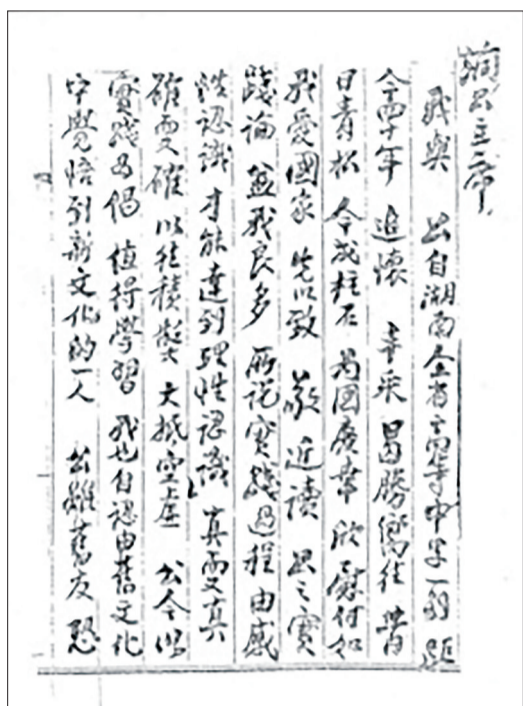 潤公主席
我與 公自湖南全省高等中學一別 距
今四十年 追懷 丰采 曷勝嚮往 昔
日青松 今成柱石 為國 欣慰何如
我愛國家 先以致 敬 近讀 公之實
踐論 益我良多 所說實踐過程由感
性認識 才能達到理性認識 真而又真
確而又確 以往積疑 大抵空虛 公今以
實踐為倡 值得學習 我也自認由舊文化
中覺悟到新文化的一人 公雖舊友 恐